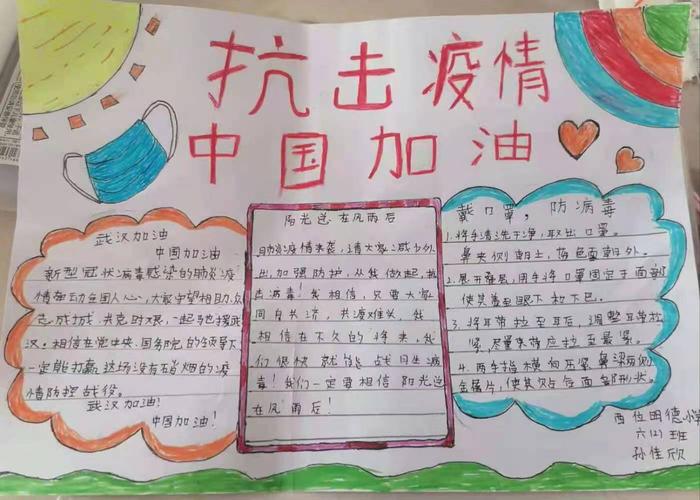 抗击疫情
中国加油
武汉加油
中国加油
新型冠状病毒感染的肺炎疫
情牵动全国人心,大家守望相助,众
志成城,共克时艰,一起驰援武
汉。相信在党中央、国务院的领导下
一定能打赢这场没有硝烟的疫
情防控战役。
武汉加油!
中国加油!
阳光总在风雨后
肺炎疫情来袭,请大家减少外
出,加强防护,从我做起,抗
击病毒!我相信,只要大家
同舟共济,共渡难关,我
相信在不久的将来,我
们很快就能战胜病
毒!我们一定要相信阳光总
在风雨后!
戴口罩,防病毒
1.将手清洗干净,取出口罩。
鼻夹侧朝上,蓝色面朝外。
2.展开褶层,用手将口罩固定于面部
使其覆至眼下和下巴。
3.将耳带拉至耳后,调整耳带松
紧,尽量夹带应拉至最紧。
4.两手指横向压紧鼻梁两侧
金属片,使其贴合面部形状。
西位明德小学
六(2)班
孙佳欣